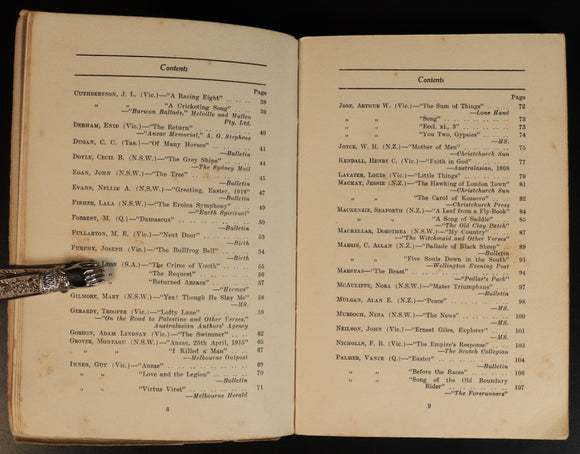 Contents
Page
CUTHBERTSON, J. L. (Vic.)—"A Racing Eight" 38
" " "A Cricketing Song" 39
—"Barwon Ballads," Melville and Mullen
Pty. Ltd.
DERHAM, ENID (Vic.)—"The Return" 40
—"Anzac Memorial," A. G. Stephens
DUGAN, C. C. (Tas.)—"Of Many Horses" 41
—Bulletin
DOYLE, CECIL B. (N.S.W.)—"The Grey Ships" 44
—The Sydney Mail
EGAN, JOHN (N.S.W.)—"The Tree"
—Bulletin
EVANS, NELLIE A. (N.S.W.)—"Greeting, Easter, 1918" 47
—Bulletin
FISHER, LALA (N.S.W.)—"The Eroica Symphony" 48
—"Earth Spiritual"
FORREST, M. (Q.)—"Damascus" 50
—Bulletin
FULLARTON, M. E. (Vic.)—"Next Door" 53
—Birth
FURPHY, JOSEPH (Vic.)—"The Bullfrog Bell" 54
—Birth
LEON (S.A.)—"The Crime of Youth" 55
" "The Request" 56
" "Returned Anzacs" 57
—"Hermes"
GILMORE, MARY (N.S.W.)—"Yea! Though He Slay Me" 58
—MS.
GERARDY, TROOPER (Vic.)—"Lofty Lane" 59
—"On the Road to Palestine and Other Verses,"
Australasian Authors' Agency
GORDON, ADAM LINDSAY (Vic.)—"The Swimmer" 62
GROVER, MONTAGU (N.S.W.)—"Anzac, 25th April, 1915" 65
" " "I Killed a Man" 67
—Melbourne Outpost
INNES, GUY (Vic.)—"Anzac" 69
" " "Love and the Legion" 70
—Bulletin
" " "Virtus Viret" 71
—Melbourne Herald
8
Contents
Page
JOSE, ARTHUR W. (Vic.)—"The Sum of Things" 72
—Lone Hand
" " "Song" 73
" " "Eccl. xi., 3" 74
" " "You Two, Gypsies" 74
—MS.
JOYCE, W. H. (N.Z.)—"Mother of Men" 75
—Christchurch Sun
KENDALL, HENRY C. (Vic.)—"Faith in God" 77
—Australasian, 1868
LAVATER, LOUIS (Vic.)—"Little Things" 77
MACKAY, JESSIE (N.Z.)—"The Hawking of London Town" 81
—Christchurch Sun
" " "The Carol of Kossovo" 82
—Christchurch Press
MACKENZIE, SEAFORTH (N.Z.)—"A Leaf from a Fly-Book" 84
" " "A Song of Saddle" 85
—"The Old Clay Patch"
MACKELLAR, DOROTHEA (N.S.W.)—"My Country" 87
—"The Witchmaid and Other Verses"
MARRIS, C. ALLAN (N.Z.)—"Ballade of Black Sheep" 89
—Bulletin
" " "Five Souls Down in the South" 91
—Wellington Evening Post
MARSYAS—"The Beast" 92
—"Pedlar's Pack"
MCAULIFFE, NORA (N.S.W.)—"Mater Triumphans" 94
—Bulletin
MULGAN, ALAN E. (N.Z.)—"Peace" 98
—MS.
MURDOCH, NINA (N.S.W.)—"The News" 98
—MS.
NEILSON, JOHN (Vic.)—"Ernest Giles, Explorer" 101
—MS.
NICHOLLS, F. B. (Vic.)—"The Empire's Response" 103
—The Scotch Collegian
PALMER, VANCE (Q.)—"Easter" 104
—Bulletin
" " "Before the Races" 106
" " "Song of the Old Boundary
Rider" 107
—"The Forerunners"
9